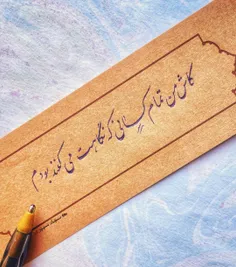 کاش من تمام کسانی که نگاهت می کنند بودم